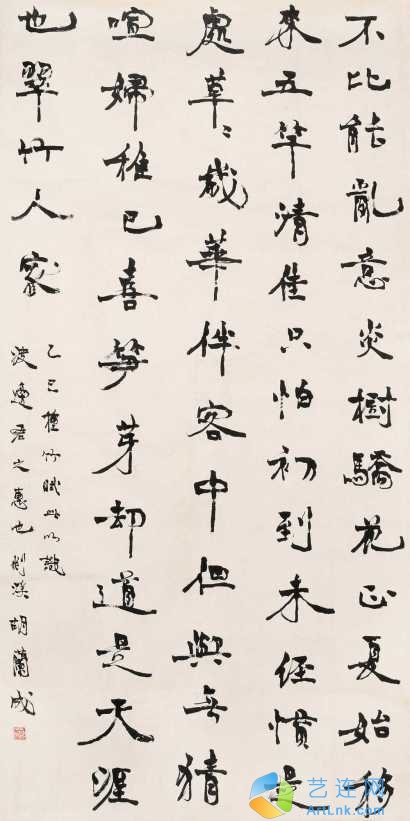 不比能亂意炎樹驕花正夏始移
來五竿清佳只怕初到未經慣是
處草〻歲華伴客中但與無猜
喧婦稚已喜筍芽却道是天涯
也翠竹人家
乙巳種竹賦此以謝
渡邊君之惠也剡溪胡蘭成
艺连网
ArtLnk.com